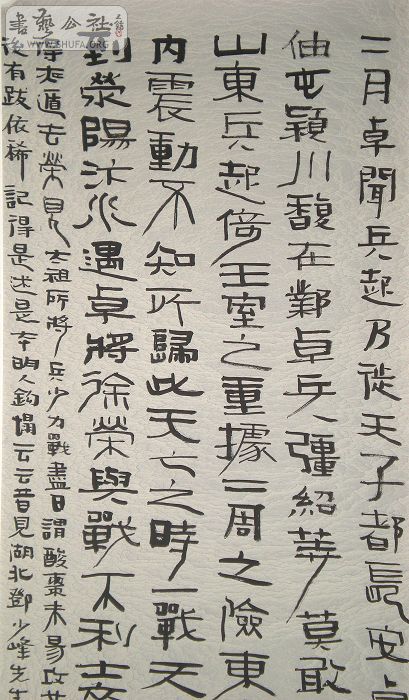 書藝公社
WWW.SHUFA.ORG
二月卓聞兵起乃徙天子都長安卓
伷屯潁川馥在鄴卓兵彊紹等莫敢
山東兵起倚王室之重據二周之險東
內震動不知所歸此天亡之時一戰天
到滎陽汴水遇卓將徐榮與戰不利士卒
得夜遁去榮見太祖所將兵少力戰盡日謂酸棗未易攻
後有跋依稀記得是述是本明人鈎云云昔見湖北鄧少峰先生